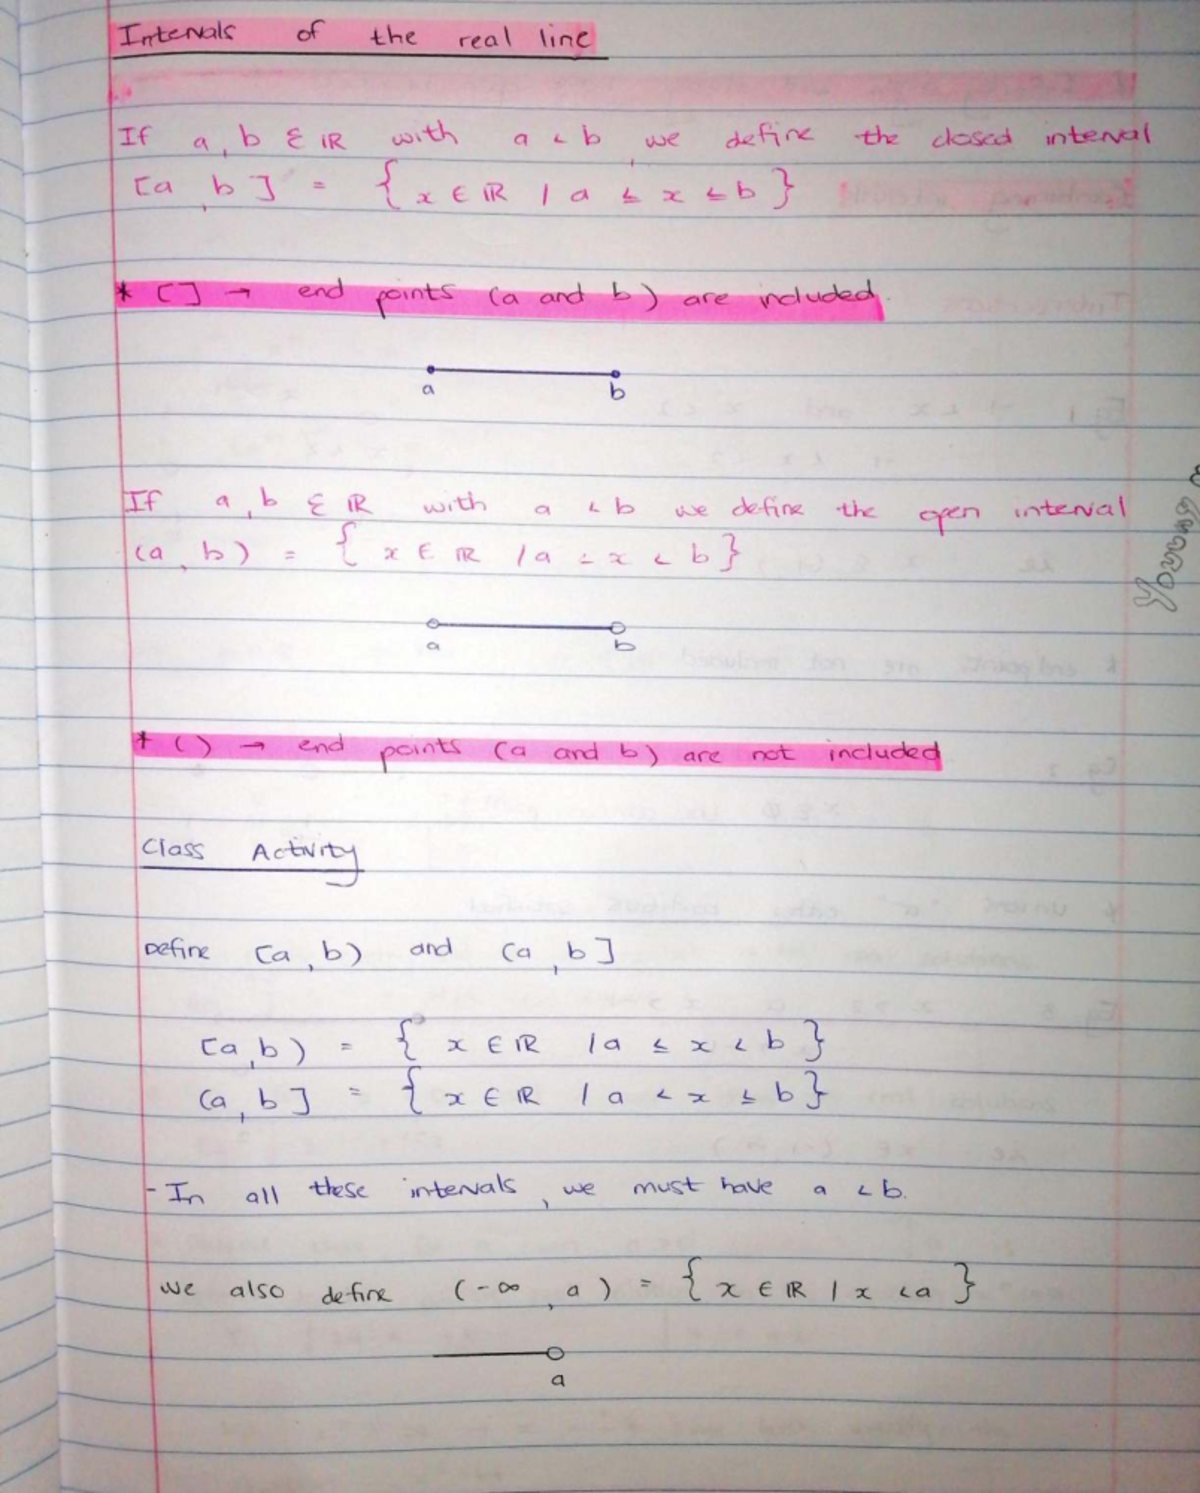 Intervals of the real line
If a, b ∈ ℝ with a < b, we define the closed interval
[a, b] = { x ∈ ℝ / a ≤ x ≤ b }
* [] → end points (a and b) are included.
a b
If a, b ∈ ℝ with a < b we define the open interval
(a, b) = { x ∈ ℝ / a < x < b }
a b
* () → end points (a and b) are not included
Class Activity
Define [a, b) and (a, b]
[a, b) = { x ∈ ℝ / a ≤ x < b }
(a, b] = { x ∈ ℝ / a < x ≤ b }
- In all these intervals, we must have a < b.
we also define (-∞, a) = { x ∈ ℝ / x < a }
a